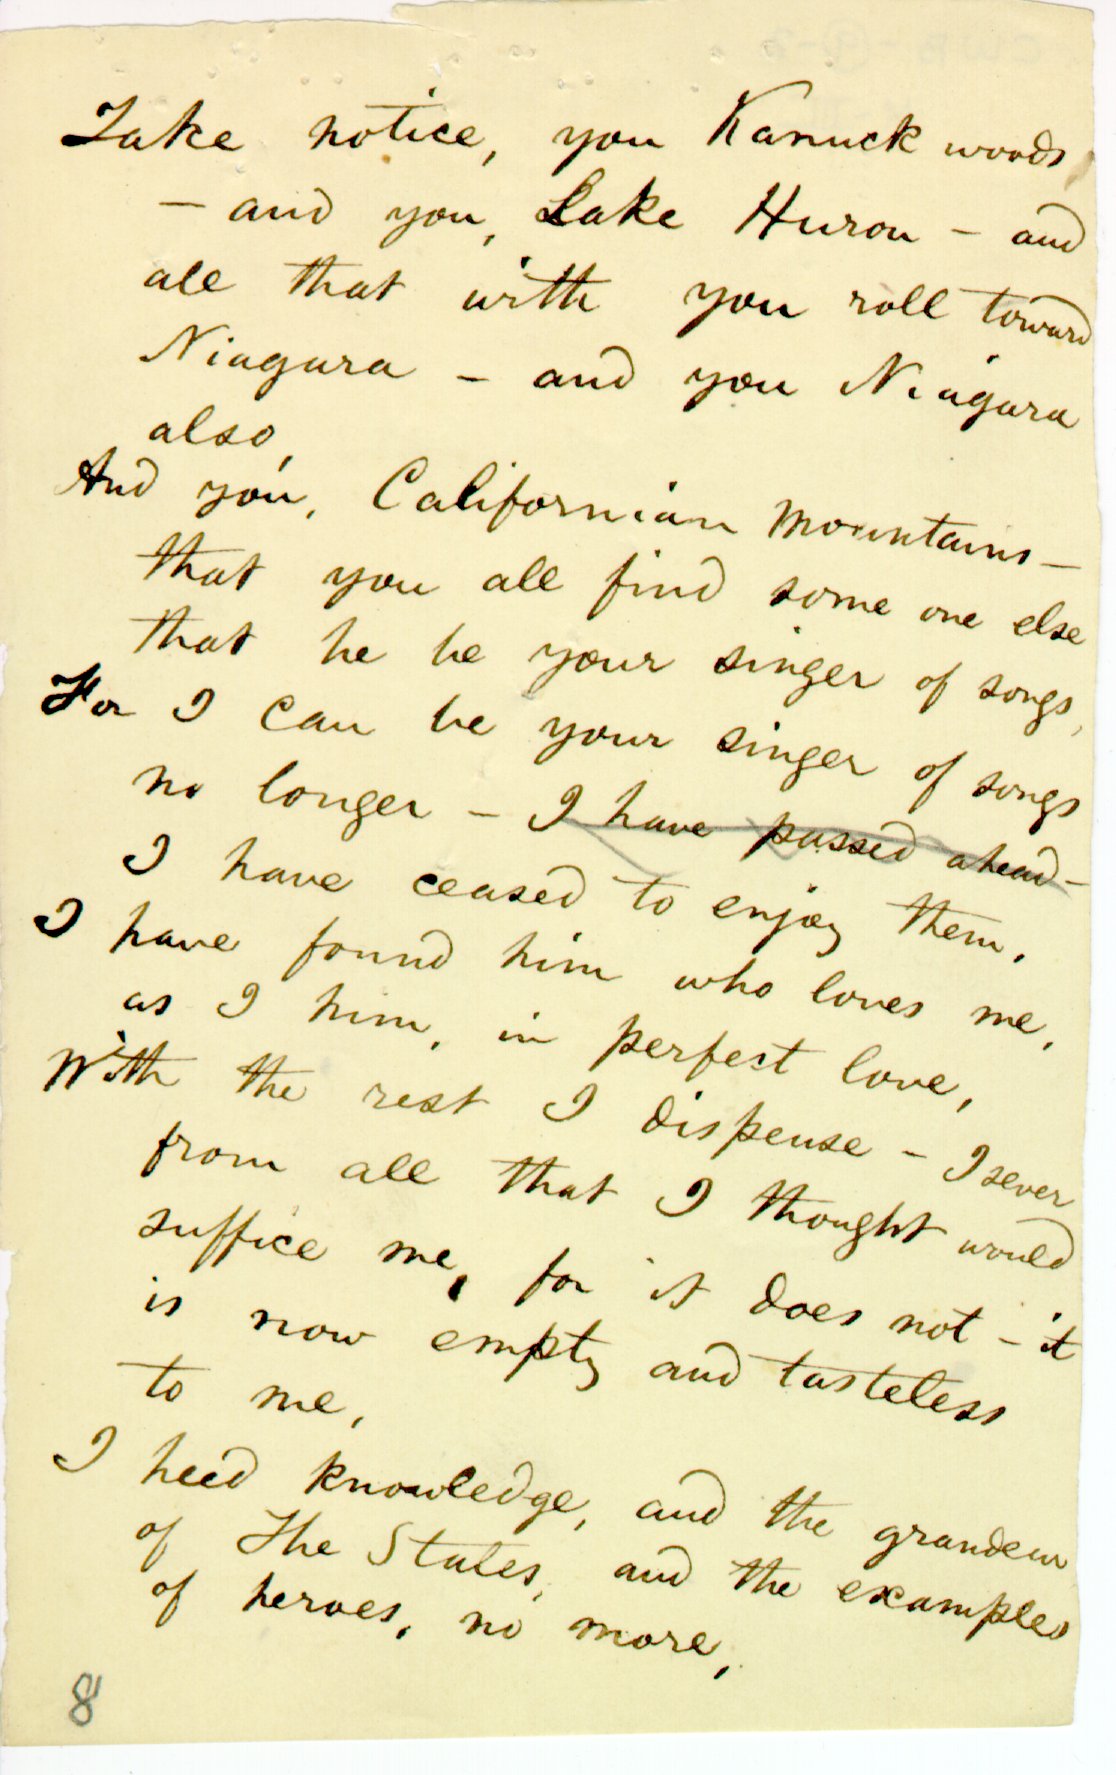 Take notice, you Kanuck woods
— and you, Lake Huron — and
all that with you roll toward
Niagara — and you Niagara
also,
And you, Californian mountains —
that you all find some one else
that he be your singer of songs,
For I can be your singer of songs
no longer — I have passed ahead —
I have ceased to enjoy them.
I have found him who loves me,
as I him, in perfect love,
With the rest I dispense — I sever
from all that I thought would
suffice me, for it does not — it
is now empty and tasteless
to me,
I heed knowledge, and the grandeur
of The States, and the examples
of heroes, no more,
8